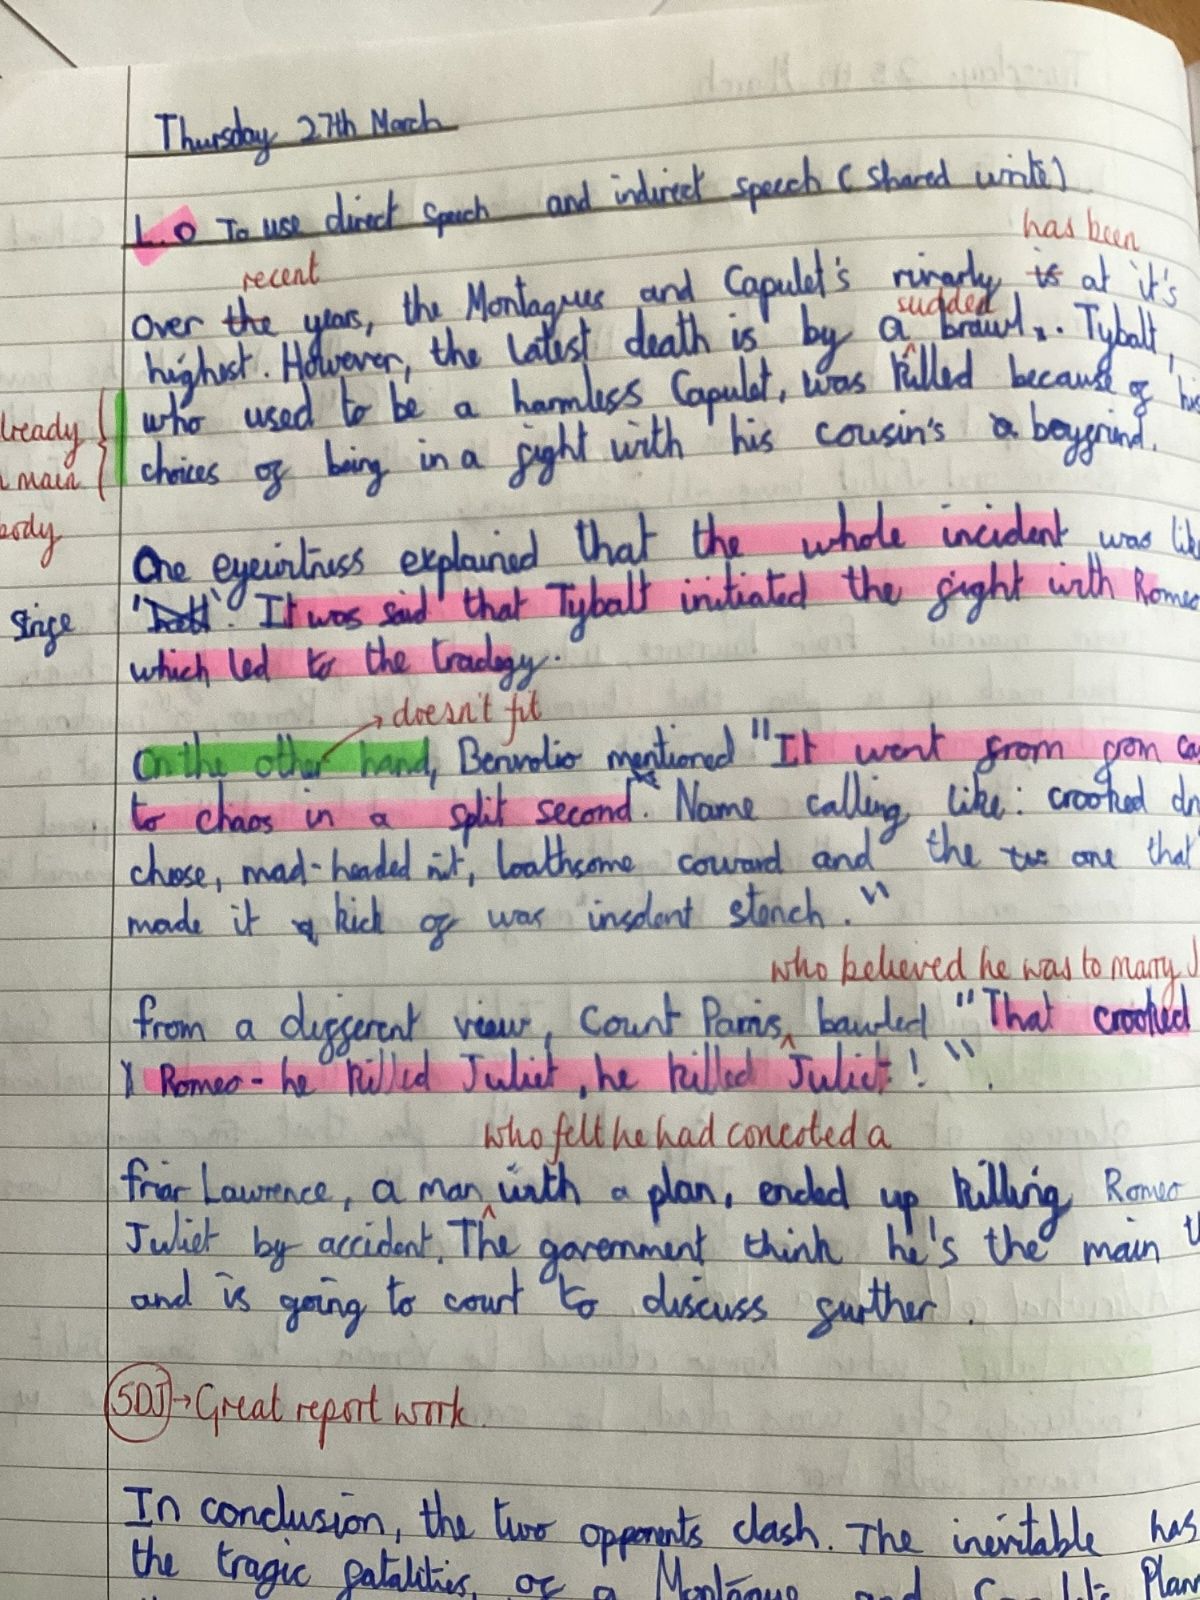 Thursday 27th March
L.O To use direct speech and indirect speech (shared write)
has been
recent
Over the years, the Montagues and Capulet's rivarly is at it's
sudded
highest. However, the latest death is by a brawl. Tybalt,
who used to be a harmless Capulet, was killed because of his
lready
choices of being in a fight with his cousin's a boyfrind.
main
body
One eyewitness explained that the whole incident was like
Strife
". It was said that Tybalt initiated the fight with Romeo
which led to the tradegy.
→ doesn't fit
On the other hand, Benvolio mentioned "It went from from ca
to chaos in a split second. Name calling like: crooked
chose, mad-headed nit, loathsome coward and the one that
made it kick of was insolent stench."
who believed he was to marry J
From a different view, Count Parris, bawled "That crooked
Romeo - he killed Juliet, he killed Juliet!".
who felt he had concoted a
Friar Lawrence, a man with a plan, ended up killing Romeo
Juliet by accident. The goverment think he's the main
and is going to court to discuss further.
SDJ → Great report work.
In conclusion, the two opponents clash. The inevitable has
the tragic fatalities, of a Montague and